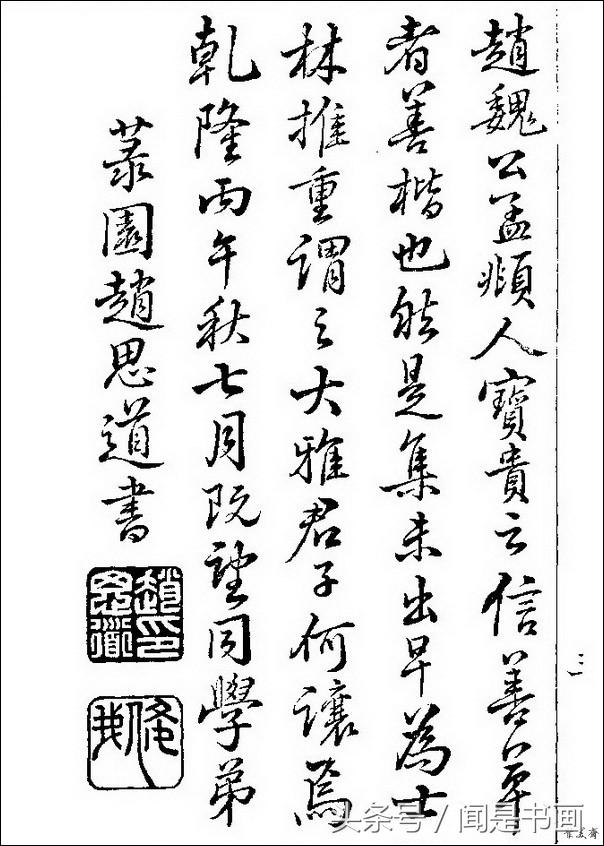 趙魏公孟頫人寶貴云信善草
者善楷也然是集未出早為士
林推重謂之大雅君子何讓焉
乾隆丙午秋七月既望同學弟
菉園趙思道書
趙印思道
三一
头条号 / 闻是书画